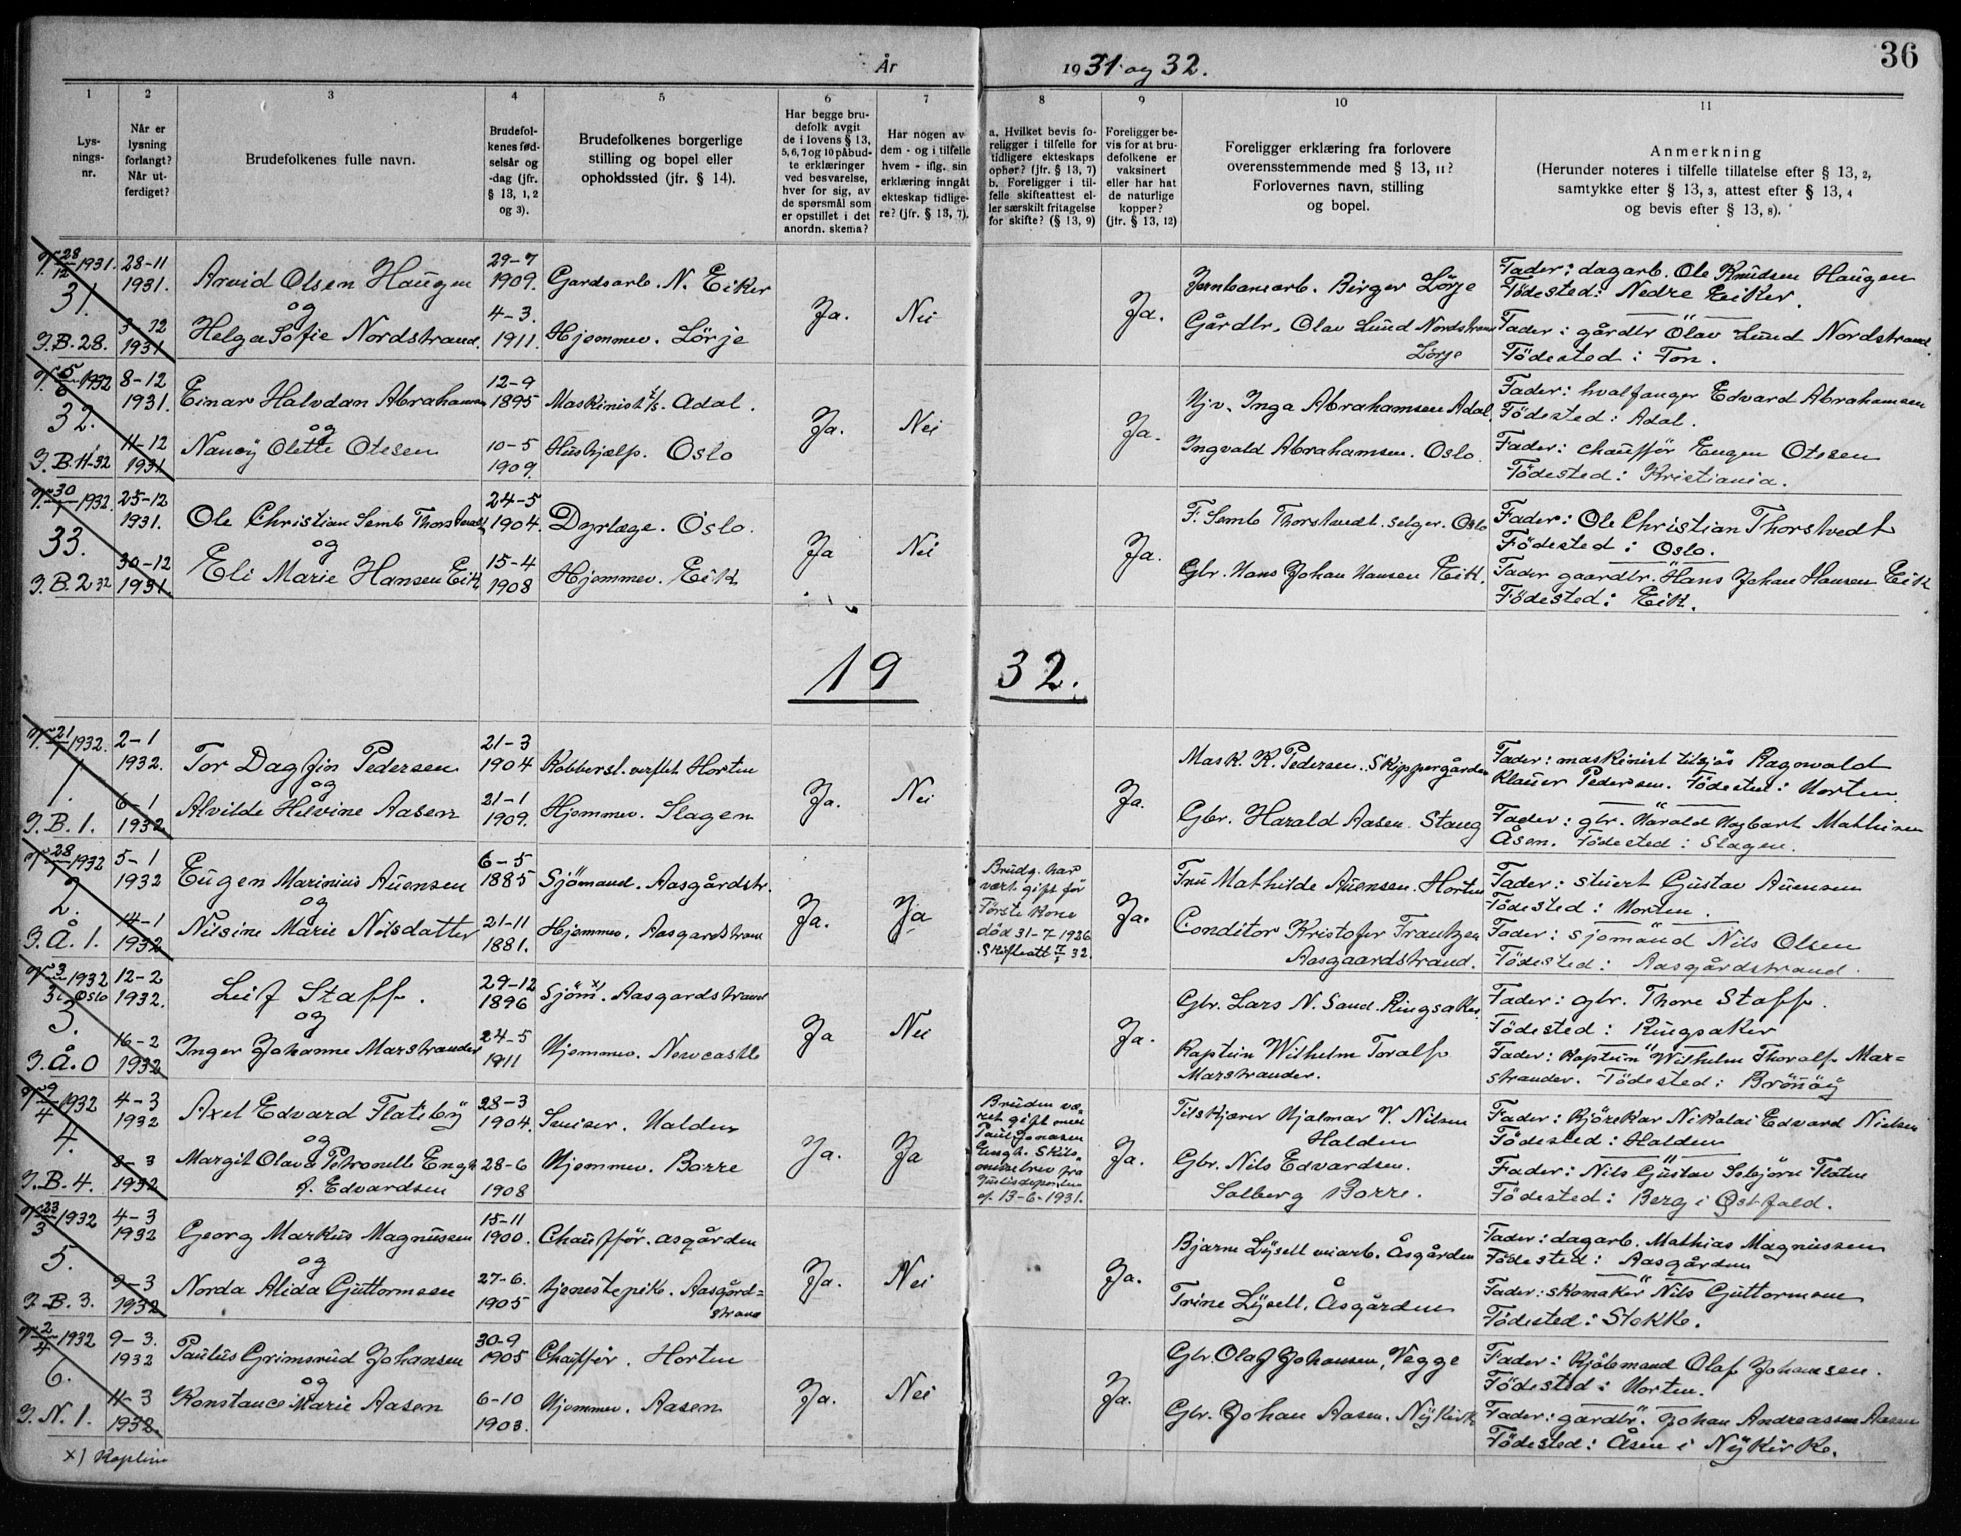 36
År 1931 og 32.
1 2 3 4 5 6 7 8 9 10 11
Lys-
nings-
nr.
Når er
lysning
forlangt?
Når ut-
ferdiget?
Brudefolkenes fulle navn.
Brudefol-
kenes fød-
selsår og
-dag (jfr.
§ 13, 1, 2
og 3).
Brudefolkenes borgerlige
stilling og bopel eller
opholdssted (jfr. § 14).
Har begge bru-
defolk avgit
de i lovens § 13,
5, 6, 7 og 10 påbud-
te erklæringer
ved besvarelse,
hver for sig, av
de spørsmål som
er opstillet i det
anordn. skema?
Har nogen av
dem - og i tilfelle
hvem - iflg. sin
erklæring inngått
ekteskap tidlige-
re? (jfr. § 13, 7).
a. Hvilket bevis fo-
religger i tilfelle for
tidligere ekteskaps
ophør? (jfr. § 13, 7)
b. Foreligger i til-
felle skifteattest el-
ler særskilt fritagelse
for skifte? (§ 13, 9)
Foreligger be-
vis for at bru-
defolkene er
vaksinert
eller har hat
de naturlige
kopper?
(jfr. § 13, 12)
Foreligger erklæring fra forlovere
overensstemmende med § 13, 11?
Forlovernes navn, stilling
og bopel.
Anmerkning
(Herunder noteres i tilfelle tillatelse efter § 13, 2,
samtykke efter § 13, 3, attest efter § 13, 4
og bevis efter § 13, 8).
V. 28/12 1931.
31.
J.B. 28.
28-11
1931.
3-12
1931
Arvid Olsen Haugen
og
Helga Sofie Nordstrand.
29-7
1909.
4-3.
1911.
Gardsarb. N. Eiker
Hjemmev. Lörje
Ja.
Nei
Ja.
Jernbanearb. Birger Lörje
Gårdbr. Olav Lund Nordstrand
Lörje
Fader: dagarb. Ole Knudsen Haugen
Födested: Nedre Eiker.
Fader: gårdbr Olav Lund Nordstrand
Födested: Ton.
V. 5/6 1932
32.
J.B. 11-32
8-12
1931.
11-12
1931
Einar Halvdan Abrahamsen
og
Nancy Olette Otesen
12-9
1895
10-5
1909.
Maskinist t/s. Adal.
Hushjælp. Oslo
Ja.
Nei
Ja.
Hjv. Inga Abrahamsen Adal.
Ingvald Abrahamsen. Oslo
Fader: hvalfanger Edvard Abrahamsen
Födested: Adal.
Fader: chauffør Eugen Otesen
Födested: Kristiania.
V. 30/1 1932.
33.
J.B. 2 32
25-12
1931.
30-12
1931.
Ole Christian Semb Thorstvedt
og
Eli Marie Hansen Eik
24-5
1904.
15-4
1908
Dyrlæge. Oslo.
Hjemmev. Eik
Ja
Nei
Ja.
F. Semb Thorstvedt. selger. Oslo
Gbr. Hans Johan Hansen Eik.
Fader: Ole Christian Thorstvedt
Födested: Oslo.
Fader gaardbr. Hans Johan Hansen Eik
Födested: Eik.
1932.
V. 21/1 1932.
1.
J.B. 1.
2-1
1932.
6-1
1932
Tor Dagfin Pedersen
og
Alvilde Helvine Aasen
21-3
1904
21-1
1909.
Kobbersl. verftet Horten
Hjemmev. Slagen
Ja.
Nei
Ja.
Mask. R. Pedersen. Skippergården
Gbr. Harald Aasen. Stang
Fader: maskinist tilsjös Ragnvald
Klauer Pedersen. Födested: Horten.
Fader: gbr. Harald Hagbart Mathisen
Åsen. Födested: Slagen.
V. 28/1 1932
2.
J.Å. 1.
5-1
1932
14-1
1932
Eugen Marinius Auensen
og
Nilsine Marie Nilsdatter
6-5
1885
21-11
1881.
Sjömand. Aasgårdstr.
Hjemmev. Aasgardstrand
Ja.
Ja
Brudg. har
vært gift før
Første kone
død 31-7 1926
Skifteatt 7/1 32.
Ja.
Fru Mathilde Auensen. Horten
Conditor Kristofer Frantzen
Aasgaardstrand.
Fader: stuert Gustav Auensen
Födested: Horten.
Fader: sjömand Nils Olsen
Födested: Aasgårdstrand.
V. 3/3 1932
i Oslo
3.
J.Å. 0
12-2
1932.
16-2
1932
Leif Staff.
og
Inger Johanne Marstrander
29-12
1896
24-5
1911
Sjöm x). Aasgardstrand
Hjemmev. Newcastle
Ja
Nei
Ja.
Gbr. Lars N. Sand. Ringsaker.
Kaptein Wilhelm Toralf
Marstrander.
Fader: gbr. Thore Staff.
Födested: Ringsaker
Fader: Kaptein Wilhelm Thoralf Mar=
strander. Födested: Brönöy
V. 9/4 1932
4.
J.B. 4.
4-3
1932
8-3
1932
Axel Edvard Flateby
og
Margit Olava Petronelle Engh
f. Edvardsen
28-3
1904.
28-6
1908
Sveiser. Halden
Hjemmev. Borre
Ja.
Ja
Bruden væ
ret gift med
Paul Jonasen
Engh. Skils
misebrev fra
Justisdeparten
af 13-6-1931.
Ja.
Tilskjærer Hjalmar V. Nilsen
Halden
Gbr. Nils Edvardsen.
Solberg Borre.
Fader: Kjörekar Nikolai Edvard Nielsen
Födested: Halden
Fader: Nils Gustav Flaten
Födested: Berg i Østfold.
V. 23/3 1932
5.
J.B. 3.
4-3
1932
9-3
1932
Georg Markus Magnussen
og
Norda Alida Guttormsen
15-11
1900.
27-6.
1905
Chauffør. Asgården
tjenestepike. Aasgård=
strand
Ja.
Nei
Ja.
Bjarne Lysell Åsgården
Trine Lysell, Åsgården
Fader: dagarb. Mathias Magnussen
Födested: Aasgården
Fader: skomaker Nils Guttormsen
Födested: Stokke.
V. 2/4 1932
6.
J.N. 1.
9-3.
1932
11-3
1932.
Paulus Grimsrud Johansen
og
Konstance Marie Aasen
30-9
1905
6-10
1903.
Chauffør. Horten
Hjemmev. Aasen
Ja.
Nei
Ja.
Gbr. Olaf Johansen, Vegge
Gbr. Johan Aasen. Nykirk
Fader: Kjöbmand Olaf Johansen.
Födested: Horten.
Fader: gardbr. Johan Andreassen Aasen
Födested: Åsen i Nykirke.
x) Kaptein